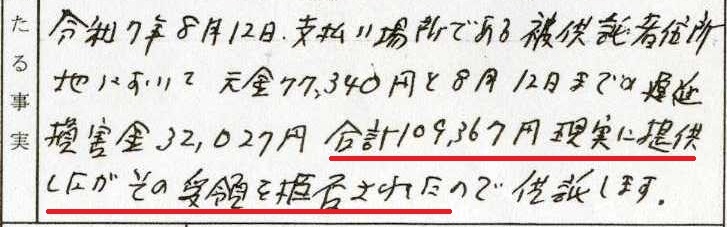 たる事実
令和7年8月12日、支払い場所である被供託者住所
地において元金77,340円と8月12日までの遅延
損害金32,027円合計109,367円現実に提供
したがその受領を拒否されたので供託します。